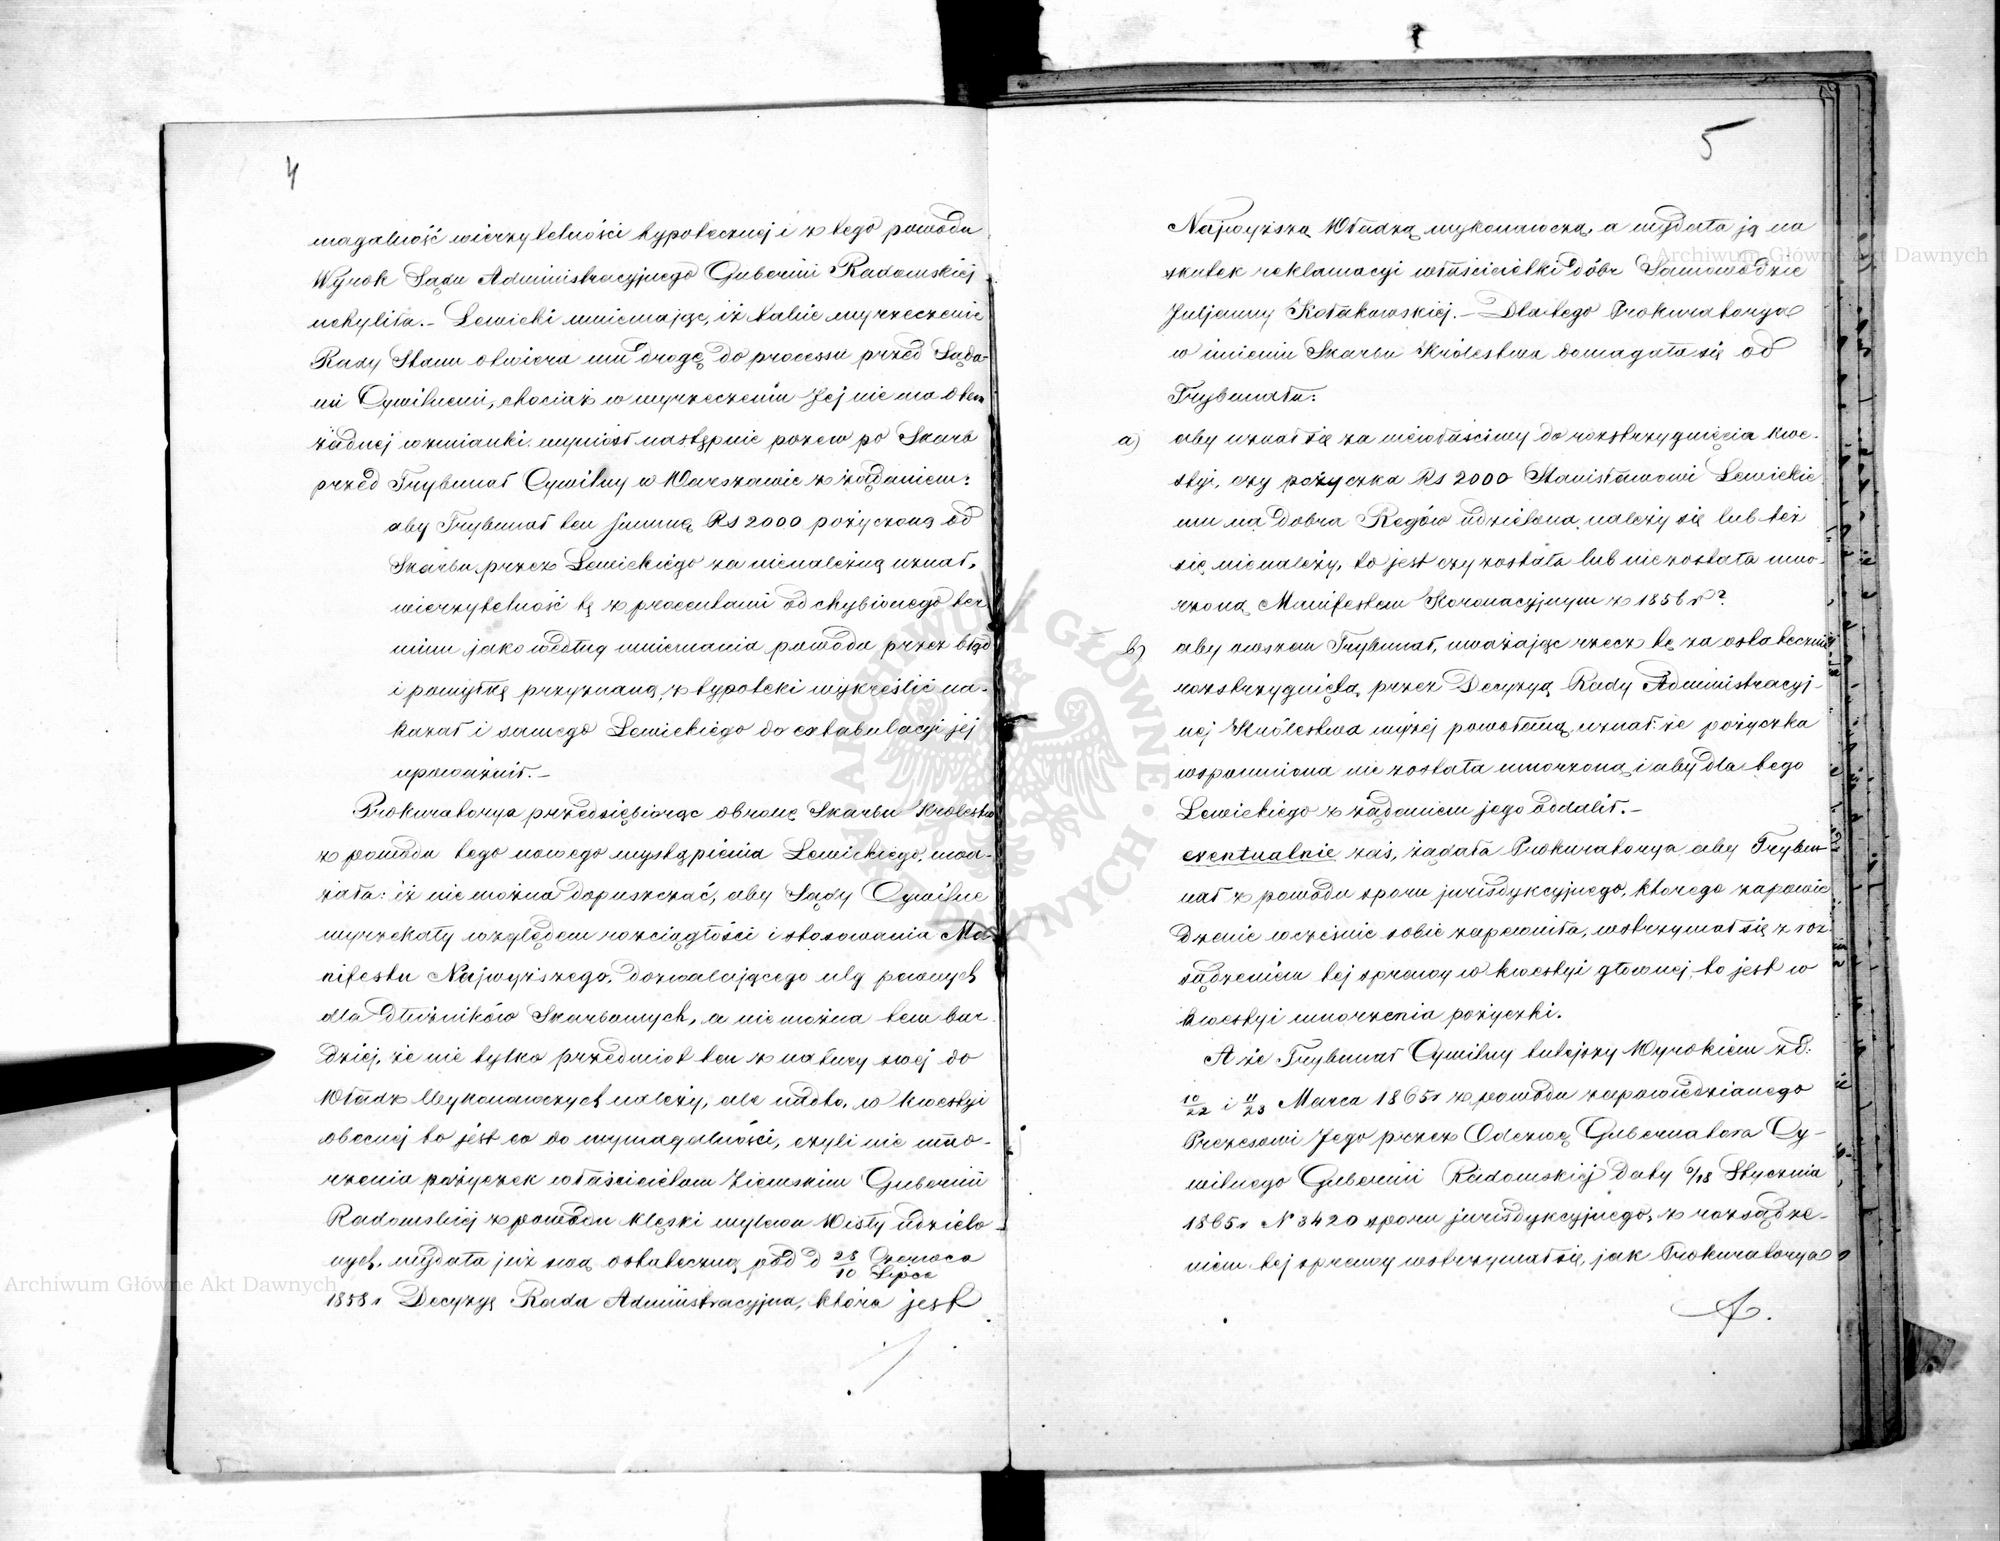 4
magalność wierzytelności hypotecznej i z tego powodu
Wyrok Sądu Administracyjnego Gubernii Radomskiej
uchyliła.- Lewicki mniemając, iż takie wyrzeczenie
Rady Stanu otwiera mu drogę do processu przed Sąda-
mi Cywilnemi, chociaż w wyrzeczeniu Jej nie ma o tem
żadnej wzmianki, wyniósł następnie pozew po Skarb
przed Trybunał Cywilny w Warszawie z żądaniem:
aby Trybunał ten summę Rs 2000 pożyczoną od
Skarbu przez Lewickiego za nienależną uznał,
wierzytelność tę z procentami od chybionego ter
minu jako według mniemania powoda przez błąd
i pomyłkę przyznaną z hypoteki wykreślić na-
kazał i samego Lewickiego do extabulacyi jej
upoważnił.-
Prokuratorya przedsiębiorąc obronę Skarbu Królestwa
z powodu tego nowego wystąpienia Lewickiego, uwa-
żała: iż nie można dopuszczać, aby Sądy Cywilne
wyrzekały względem rozciągłości i stosowania Ma-
nifestu Najwyższego, dozwalającego ulg pewnych
dla Dłużników Skarbowych, a nie można tem bar
dziej, że nie tylko przedmiot ten z natury swej do
Władz Wykonawczych należy, ale nadto, w kwestyi
obecnej to jest co do wymagalności, czyli nie umo-
rzenia pożyczek właścicielom Ziemskim Gubernii
Radomskiej z powodu klęski wylewu Wisły udzielo-
nych, wydała już swą ostateczną pod d 28/10 Czerwca/Lipca
1858 r Decyzyę Rada Administracyjna, która jest
5
Najwyższą Władzą wykonawczą, a wydała ją na
skutek reklamacyi właścicielki dóbr Samowodzie
Juljanny Kołakowskiej.- Dlatego Prokuratorya
w imieniu Skarbu Królestwa domagała się od
Trybunału:
a) aby uznał się za niewłaściwy do rozstrzygnięcia kwe-
styi, czy pożyczka Rs 2000 Stanisławowi Lewickie
mu na dobra Regów udzielona, należy się lub też
się nienależy, to jest czy została lub nie została umo-
rzoną Manifestem Koronacyjnym z 1856 r?
b) aby owszem Trybunał, uważając rzecz tę za ostatecznie
rozstrzygniętą przez Decyzyą Rady Administracyj-
nej Królestwa wyżej powołaną, uznał: że pożyczka
wspomniona nie została umorzoną i aby dla tego
Lewickiego z żądaniem jego oddalił.-
eventualnie zaś, żądała Prokuratorya aby Trybu-
nał z powodu sporu jurisdykcyjnego, którego zapowie
dzenie wcześnie sobie zapewniła, wstrzymał się z roz
sądzeniem tej sprawy w kwestyi głównej, to jest w
kwestyi umorzenia pożyczki.
A że Trybunał Cywilny tutejszy Wyrokiem z d:
10/22 i 11/23 Marca 1865 r z powodu zapowiedzianego
Prezesowi Jego przez Odezwę Gubernatora Cy-
wilnego Gubernii Radomskiej Daty 6/18 Stycznia
1865 r N 3420 sporu jurisdykcyjnego, z rozsądze-
niem tej sprawy wstrzymał się, jak Prokuratorya
Archiwum Główne Akt Dawnych
Archiwum Główne Akt Dawnych
ARCHIWUM GŁÓWNE AKT DAWNYCH